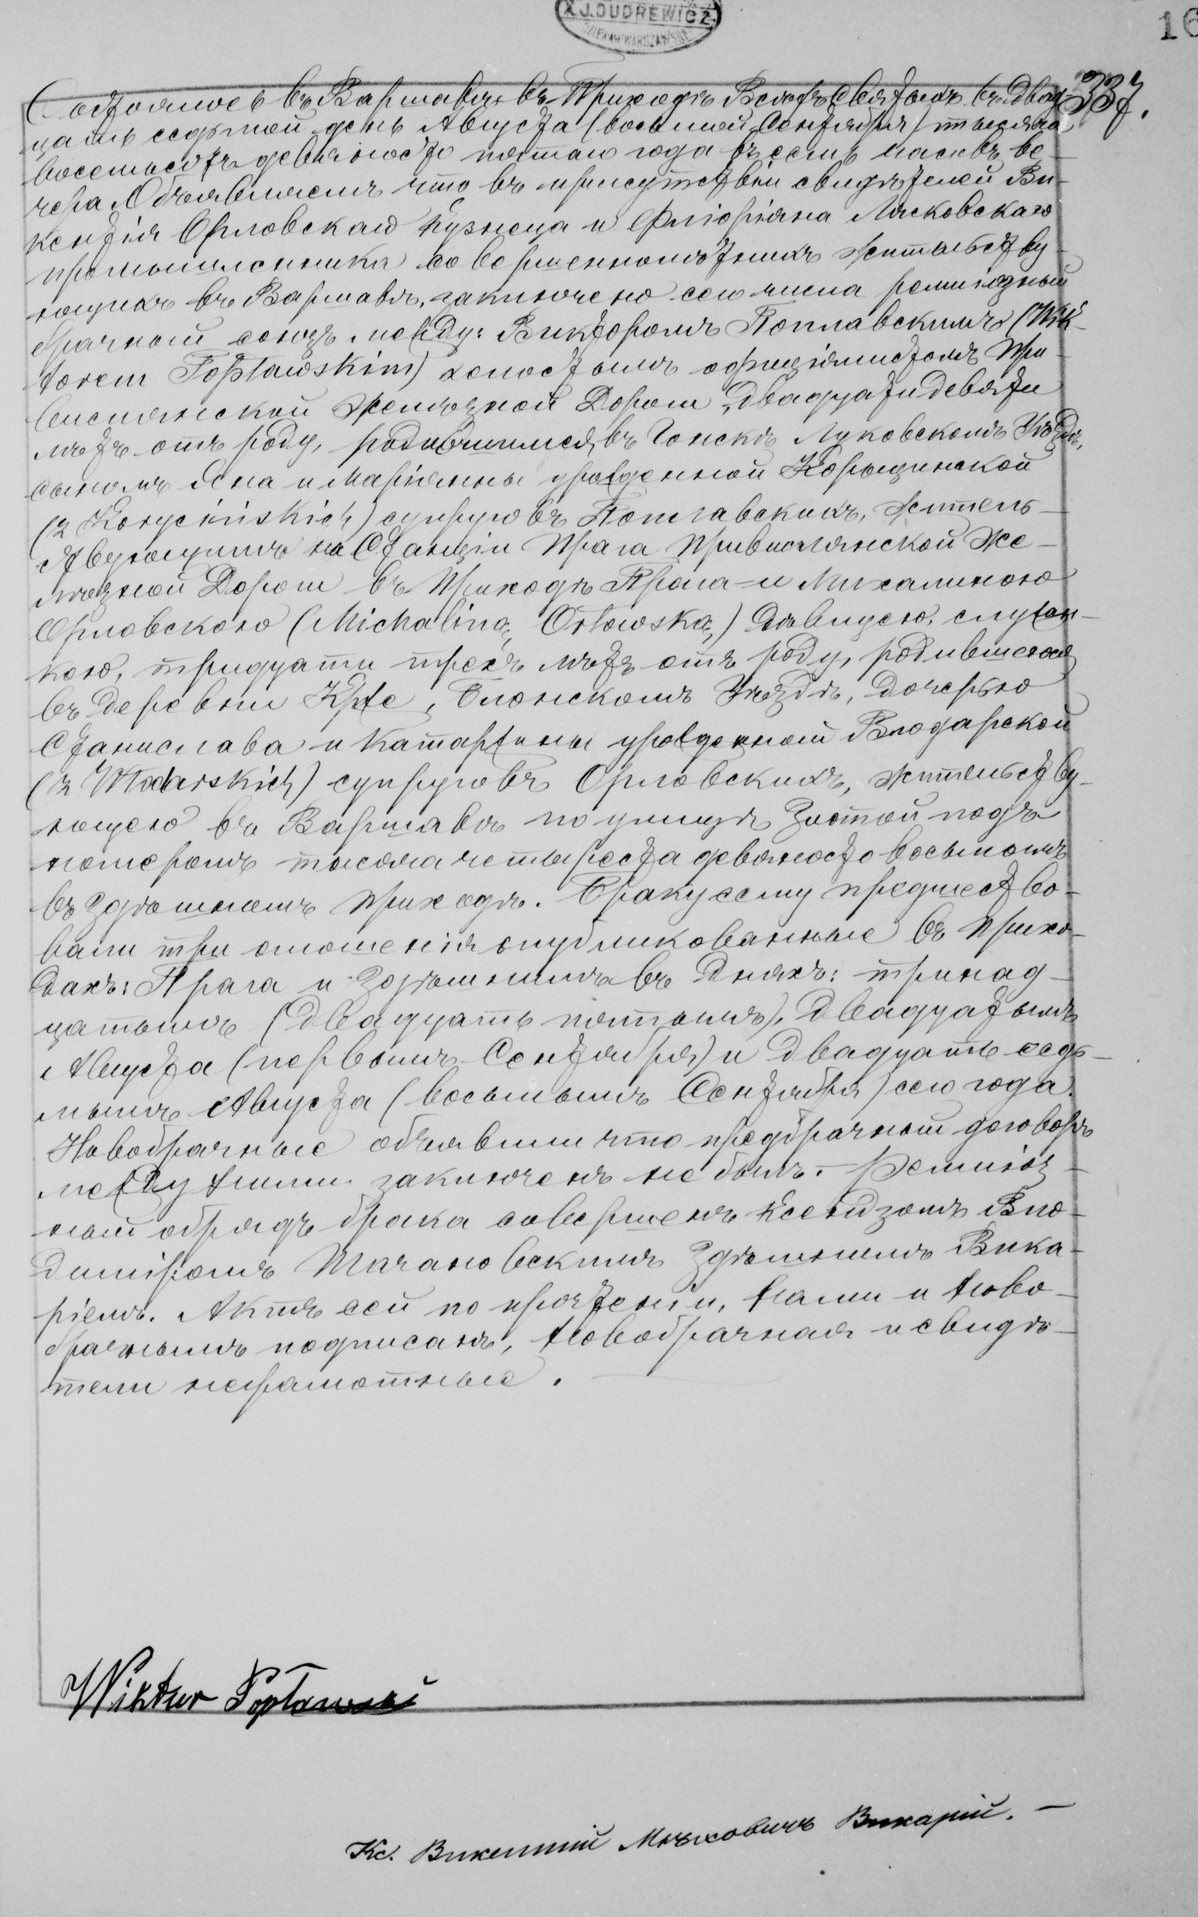 X. J. DUDREWICZ
DZIEKAN WARSZAWSKI
16
337.
Состоялось въ Варшавѣ въ Приходѣ Всѣхъ Святыхъ въ двад-
цать седьмой день Августа (восьмой Сентября) тысяча
восемьсотъ девяносто пятаго года въ семь часовъ ве-
чера. Объявляемъ что въ присутствіи свидѣтелей Ви-
кентія Орловскаго Кузнеца и Флоріяна Лясковскаго
промышленника совершеннолѣтнихъ жительству-
ющихъ въ Варшавѣ, заключено сего числа религіозный
брачный союзъ между: Викторомъ Поплавскимъ (Wik-
torem Popławskim) холостымъ оффиціялистомъ При-
вислянской Желѣзной Дороги, двадцати девяти
лѣтъ отъ роду, родившимся въ Гонскѣ Луковскомъ Уѣздѣ,
сыномъ Яна и Маріянны урожденной Корыцинской
(z Korycińskich) супруговъ Поплавскихъ, житель-
ствующимъ на Станціи Прага Привислянской Же-
лѣзной Дороги въ Приходѣ Прага – и Михалиною
Орловскою (Michaliną Orłowską) Дѣвицею, служан-
кою, тридцати трехъ лѣтъ отъ роду, родившеюся
въ деревни, Блонскомъ Уѣздѣ, дочерью
Станислава и Катаржины урожденной Влодарской
(z Włodarskich) супруговъ Орловскихъ, жительству-
ющею въ Варшавѣ по улицѣ Злотой подъ
номеромъ тысяча четыреста девяносто восьмомъ
въ здѣшнемъ приходѣ. Браку сему предшество-
вали три оглашенія опубликованные въ прихо-
дахъ: Прага и здѣшнимъ въ дняхъ: тринад-
цатымъ (двадцать пятымъ), двадцатымъ
Августа (первымъ Сентября) и двадцать седь-
мымъ Августа (восьмымъ Сентября) сего года.
Новобрачные объявили что предбрачный договоръ
между ними заключенъ не былъ. – Религіоз-
ный обрядъ брака совершенъ Ксендзомъ Вло-
диміромъ Тачановскимъ Здѣшнимъ Вика-
ріемъ. Актъ сей по прочтеніи, Нами и Ново-
брачнымъ подписанъ, Новобрачная и свидѣ-
тели неграмотные. —
Wiktor Popławski
Кс. Викентій Мѣховичъ Викарій. –